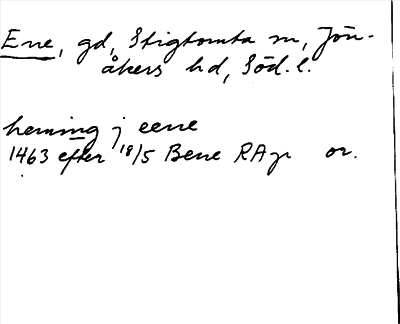 Ene, gd, Stigtomta sn, Jön-
åkers hd, Söd. l.
heming j eene
1463 efter 18/5 Bene RAp or.